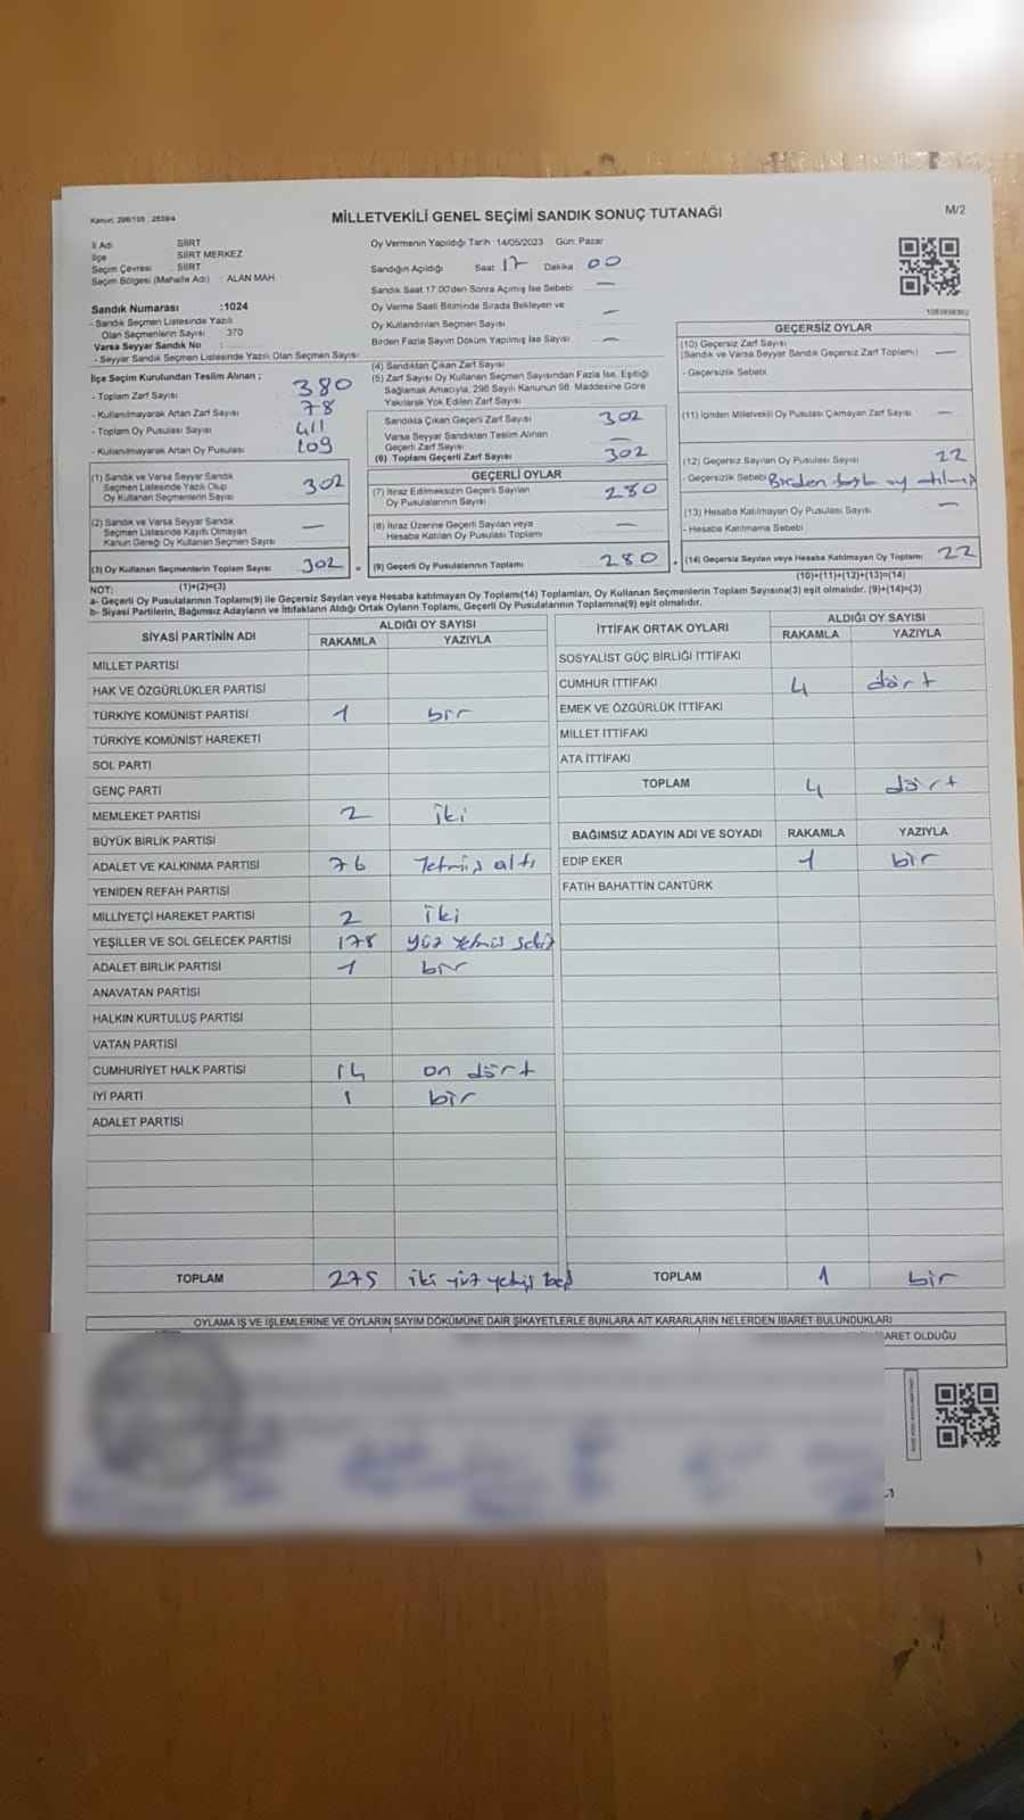 Kanun: 298/105 ; 2839/4
MİLLETVEKİLİ GENEL SEÇİMİ SANDIK SONUÇ TUTANAĞI
M/2
İl Adı SİİRT
İlçe SİİRT MERKEZ
Seçim Çevresi SİİRT
Seçim Bölgesi (Mahalle Adı) : ALAN MAH.
Sandık Numarası :1024
- Sandık Seçmen Listesinde Yazılı
Olan Seçmenlerin Sayısı 370
Varsa Seyyar Sandık No :
- Seyyar Sandık Seçmen Listesinde Yazılı Olan Seçmen Sayısı
Oy Vermenin Yapıldığı Tarih :14/05/2023 Gün: Pazar
Sandığın Açıldığı Saat 17 Dakika 00
Sandık Saat 17.00'den Sonra Açılmış İse Sebebi: —
Oy Verme Saati Bitiminde Sırada Bekleyen ve
Oy Kullandırılan Seçmen Sayısı —
Birden Fazla Sayım Döküm Yapılmış İse Sayısı —
İlçe Seçim Kurulundan Teslim Alınan ;
- Toplam Zarf Sayısı 380
- Kullanılmayarak Artan Zarf Sayısı 78
- Toplam Oy Pusulası Sayısı 411
- Kullanılmayarak Artan Oy Pusulası 109
(1) Sandık ve Varsa Seyyar Sandık
Seçmen Listesinde Yazılı Olup
Oy Kullanan Seçmenlerin Sayısı 302
(2) Sandık ve Varsa Seyyar Sandık
Seçmen Listesinde Kayıtlı Olmayan
Kanun Gereği Oy Kullanan Seçmen Sayısı —
(3) Oy Kullanan Seçmenlerin Toplam Sayısı 302
(1)+(2)=(3)
(4) Sandıktan Çıkan Zarf Sayısı
(5) Zarf Sayısı Oy Kullanan Seçmen Sayısından Fazla İse, Eşitliği
Sağlamak Amacıyla, 298 Sayılı Kanunun 98. Maddesine Göre
Yakılarak Yok Edilen Zarf Sayısı
Sandıkta Çıkan Geçerli Zarf Sayısı 302
Varsa Seyyar Sandıktan Teslim Alınan
Geçerli Zarf Sayısı —
(6) Toplam Geçerli Zarf Sayısı 302
GEÇERLİ OYLAR
(7) İtiraz Edilmeksizin Geçerli Sayılan
Oy Pusulalarının Sayısı 280
(8) İtiraz Üzerine Geçerli Sayılan veya
Hesaba Katılan Oy Pusulası Toplamı —
(9) Geçerli Oy Pusulalarının Toplamı 280
GEÇERSİZ OYLAR
(10) Geçersiz Zarf Sayısı
(Sandık ve Varsa Seyyar Sandık Geçersiz Zarf Toplamı) —
- Geçersizlik Sebebi
(11) İçinden Milletvekili Oy Pusulası Çıkmayan Zarf Sayısı —
(12) Geçersiz Sayılan Oy Pusulası Sayısı 22
- Geçersizlik Sebebi Birden fazla oy atılmış
(13) Hesaba Katılmayan Oy Pusulası Sayısı —
- Hesaba Katılmama Sebebi
(14) Geçersiz Sayılan veya Hesaba Katılmayan Oy Toplamı 22
(10)+(11)+(12)+(13)=(14)
NOT:
a- Geçerli Oy Pusulalarının Toplamı(9) ile Geçersiz Sayılan veya Hesaba katılmayan Oy Toplamı(14) Toplamları, Oy Kullanan Seçmenlerin Toplam Sayısına(3) eşit olmalıdır. (9)+(14)=(3)
b- Siyasi Partilerin, Bağımsız Adayların ve İttifakların Aldığı Ortak Oyların Toplamı, Geçerli Oy Pusulalarının Toplamına(9) eşit olmalıdır.
SİYASİ PARTİNİN ADI
ALDIĞI OY SAYISI
RAKAMLA YAZIYLA
MİLLET PARTİSİ
HAK VE ÖZGÜRLÜKLER PARTİSİ
TÜRKİYE KOMÜNİST PARTİSİ 1 bir
TÜRKİYE KOMÜNİST HAREKETİ
SOL PARTİ
GENÇ PARTİ
MEMLEKET PARTİSİ 2 iki
BÜYÜK BİRLİK PARTİSİ
ADALET VE KALKINMA PARTİSİ 76 Yetmiş altı
YENİDEN REFAH PARTİSİ
MİLLİYETÇİ HAREKET PARTİSİ 2 iki
YEŞİLLER VE SOL GELECEK PARTİSİ 178 yüz yetmiş sekiz
ADALET BİRLİK PARTİSİ 1 bir
ANAVATAN PARTİSİ
HALKIN KURTULUŞ PARTİSİ
VATAN PARTİSİ
CUMHURİYET HALK PARTİSİ 14 on dört
İYİ PARTİ 1 bir
ADALET PARTİSİ
TOPLAM 275 iki yüz yetmiş beş
İTTİFAK ORTAK OYLARI
ALDIĞI OY SAYISI
RAKAMLA YAZIYLA
SOSYALİST GÜÇ BİRLİĞİ İTTİFAKI
CUMHUR İTTİFAKI 4 dört
EMEK VE ÖZGÜRLÜK İTTİFAKI
MİLLET İTTİFAKI
ATA İTTİFAKI
TOPLAM 4 dört
BAĞIMSIZ ADAYIN ADI VE SOYADI RAKAMLA YAZIYLA
EDİP EKER 1 bir
FATİH BAHATTİN CANTÜRK
TOPLAM 1 bir
OYLAMA İŞ VE İŞLEMLERİNE VE OYLARIN SAYIM DÖKÜMÜNE DAİR ŞİKAYETLERLE BUNLARA AİT KARARLARIN NELERDEN İBARET BULUNDUKLARI
ARET OLDUĞU